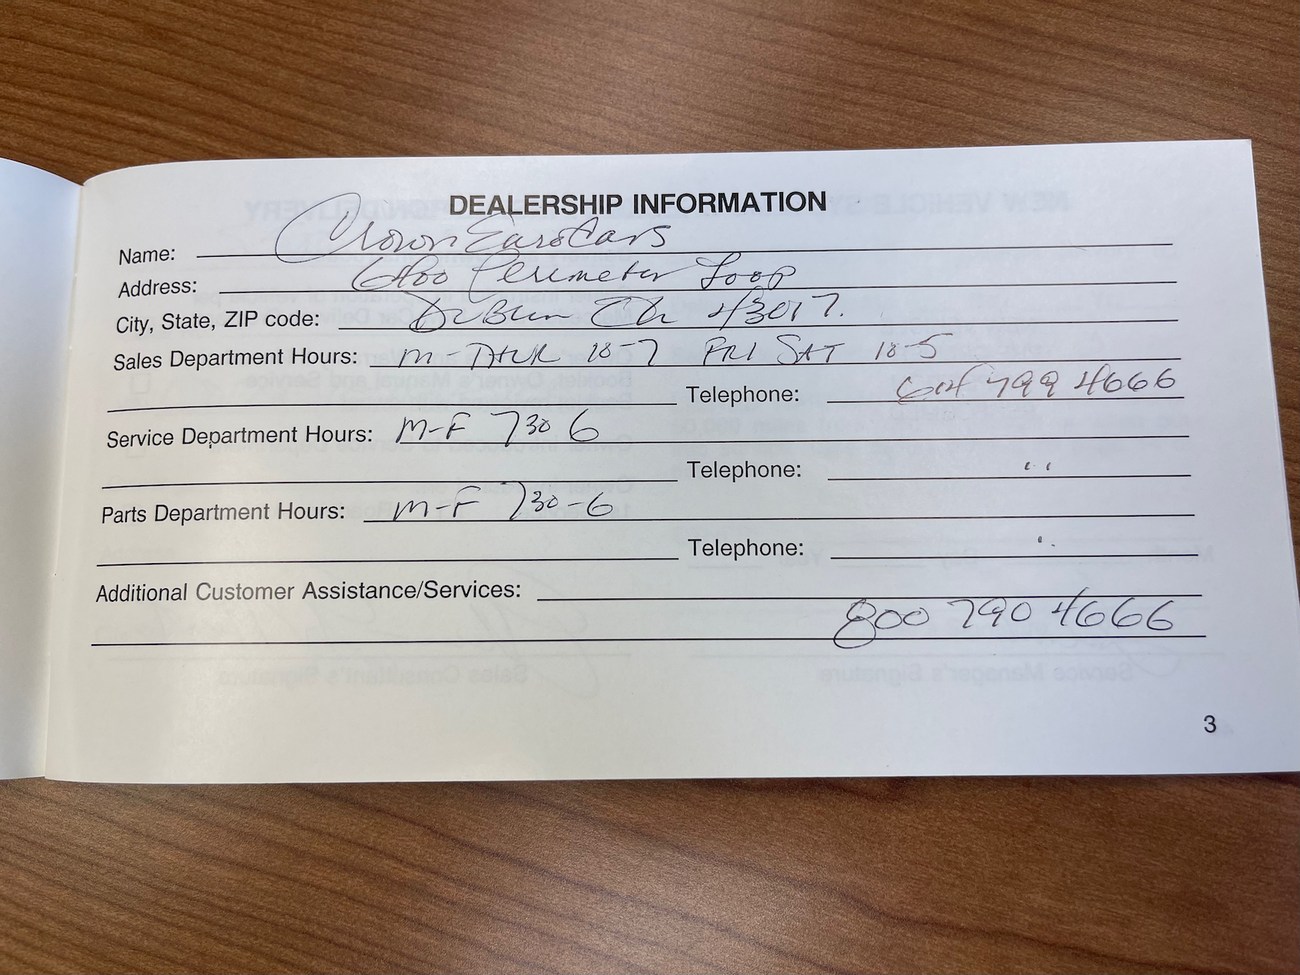 DEALERSHIP INFORMATION
Name: Crown EuroCars
Address: 6400 Perimeter Loop
City, State, ZIP code: Dublin Oh 43017.
Sales Department Hours: M-THUR 10-7 FRI SAT 10-5
Telephone: 614 799 4666
Service Department Hours: M-F 730 6
Telephone: "
Parts Department Hours: M-F 730-6
Telephone: "
Additional Customer Assistance/Services:
800 790 4666
3